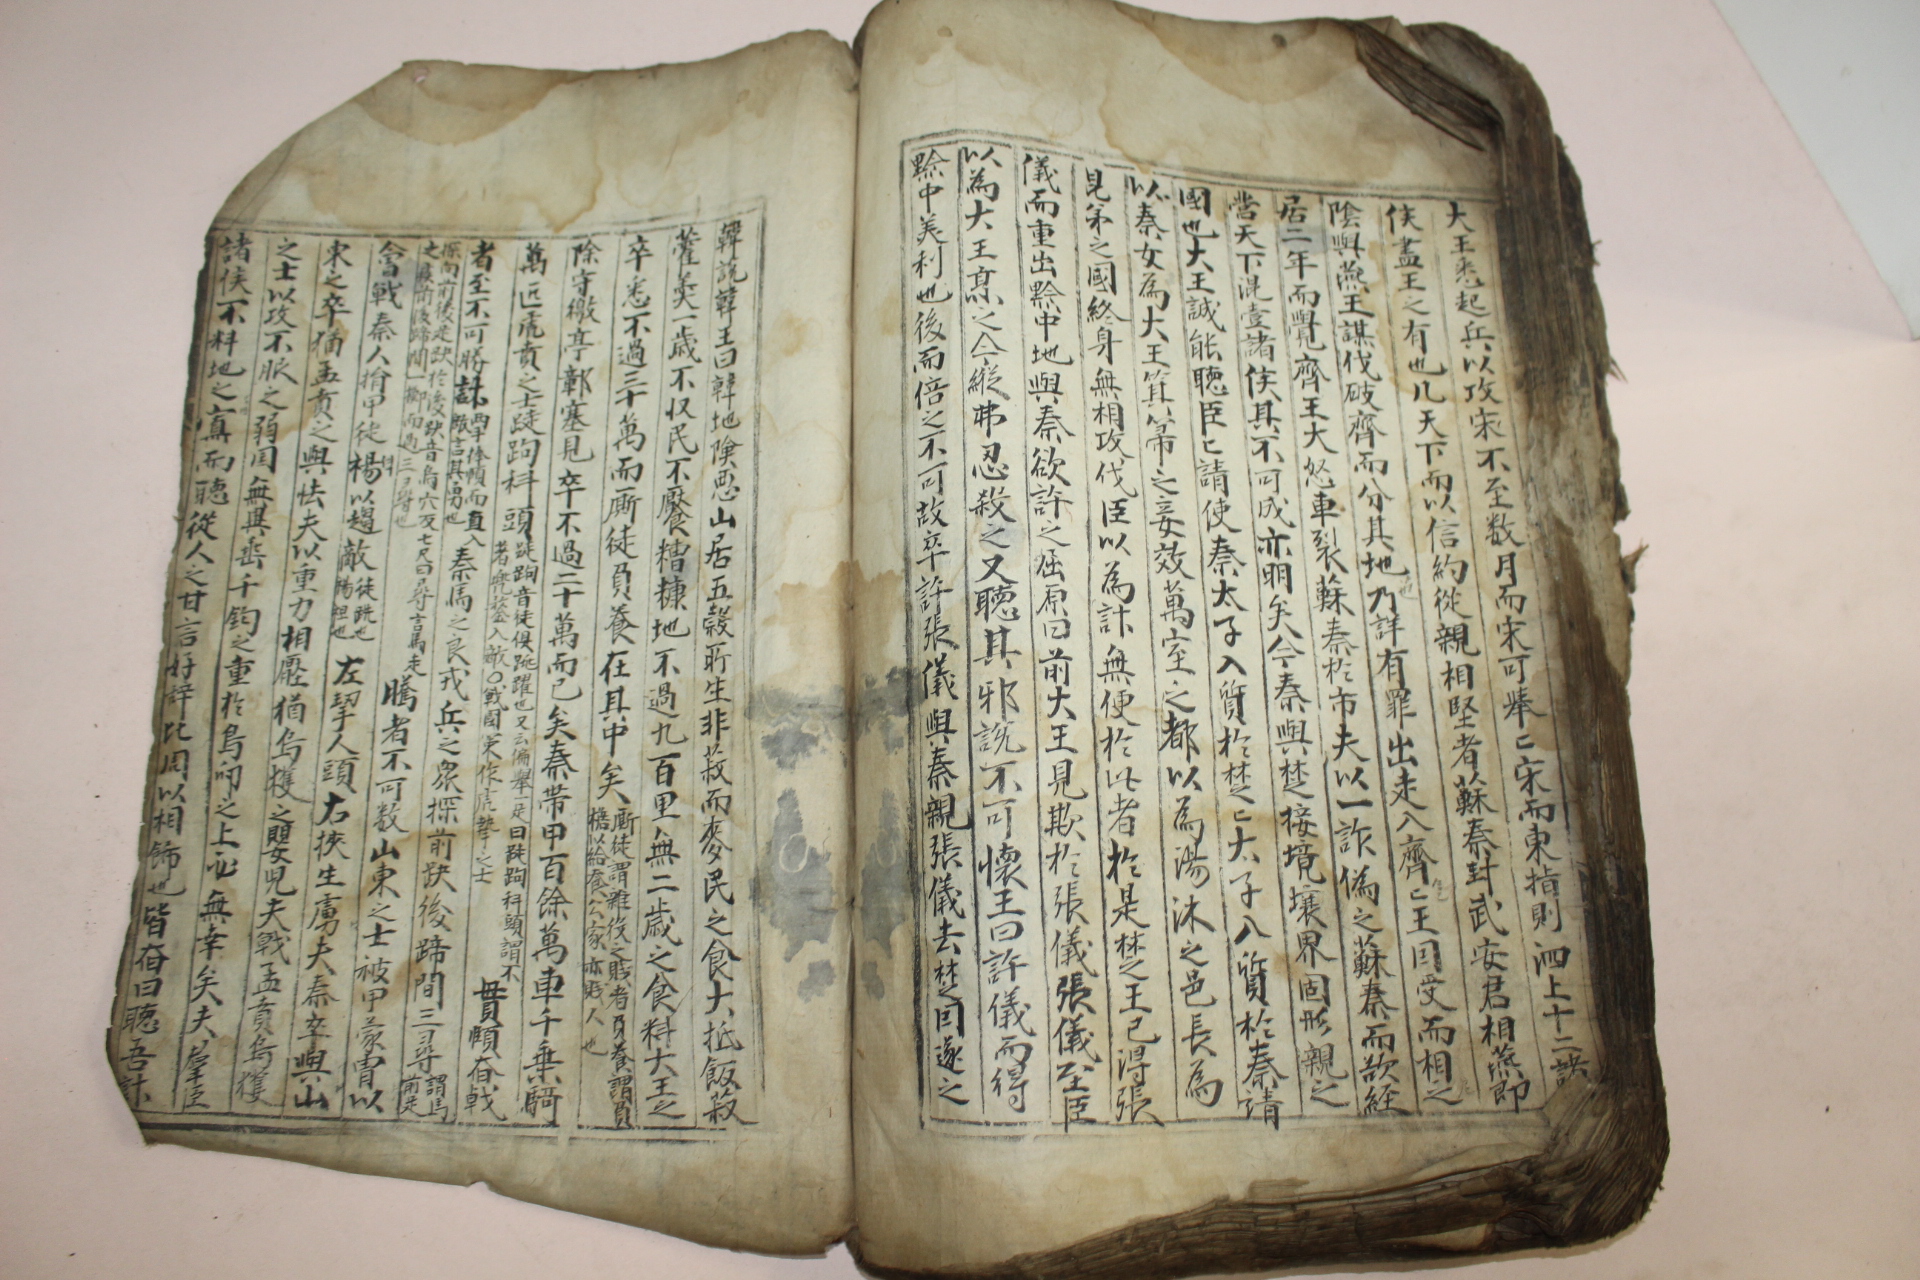 大王悉起兵以攻宋不至数月而宋可舉匕宋而東指則泗上十二諸
侯盡王之有也凡天下而以信約從親相堅者蘇秦封武安君相燕即
陰與燕王謀伐破齊而分其地乃詳有罪出走入齊匕王因受而相之
居二年而覺齊王大怒車裂蘇秦於市夫以一詐偽之蘇秦而欲経
當天下混壹諸侯其不可成亦明矣今秦與楚接境壤界固形親之
國也大王誠能聽臣匕請使秦太子入質於楚匕大子入質於秦請
以秦女為大王箕箒之妾效萬室之都以為湯沐之邑長為
昆弟之國終身無相攻伐臣以為計無便於此者於是楚王已得張
儀而重出黔中地與秦欲許之屈原曰前大王見欺於張儀張儀至臣
以為大王烹之今縱弗忍殺之又聽其邪說不可懷王曰許儀而得
黔中美利也後而倍之不可故卒許張儀與秦親張儀去楚因遂之
韓說韓王曰韓地險悪山居五穀所生非菽而麥民之食大抵飯菽
藿羹一歲不収民不饜糟糠地不過九百里無二歲之食料大王之
卒悉不過三十萬而廝徒負養在其中矣廝徒謂雜役之賎者負養謂負
檐以給養公家亦賎人也
除守徼亭鄣塞見卒不過二十萬而已矣秦帶甲百餘萬車千乗騎
萬匹虎賁之士跿跔科頭跿跔音徒俱跳躍也又云偏舉一足曰跿跔科頭謂不
著兜鍪入敵〇戰國策作虎摯之士
貫頤奋戟
者至不可勝計
秦馬之良戎兵之衆探前趹後蹄間三尋謂馬
前足
探向前後足趹於後趹音烏穴反七尺曰尋言馬走
之疾前後蹄間一擲而過三尋也
騰者不可数山東之士被甲蒙冑以
會戰秦人捨甲徒裼以趨敵徒跣也
裼袒也
左挈人頭右挾生虜夫秦卒與山
東之卒猶孟賁之與怯夫以重力相壓猶烏獲之與嬰児夫戰孟賁烏獲
之士以攻不服之弱国無異垂千鈞之重於鳥卵之上必無幸矣夫羣臣
諸侯不料地之寡而聽從人之甘言好辞比周以相飾也皆奋曰聽吾計